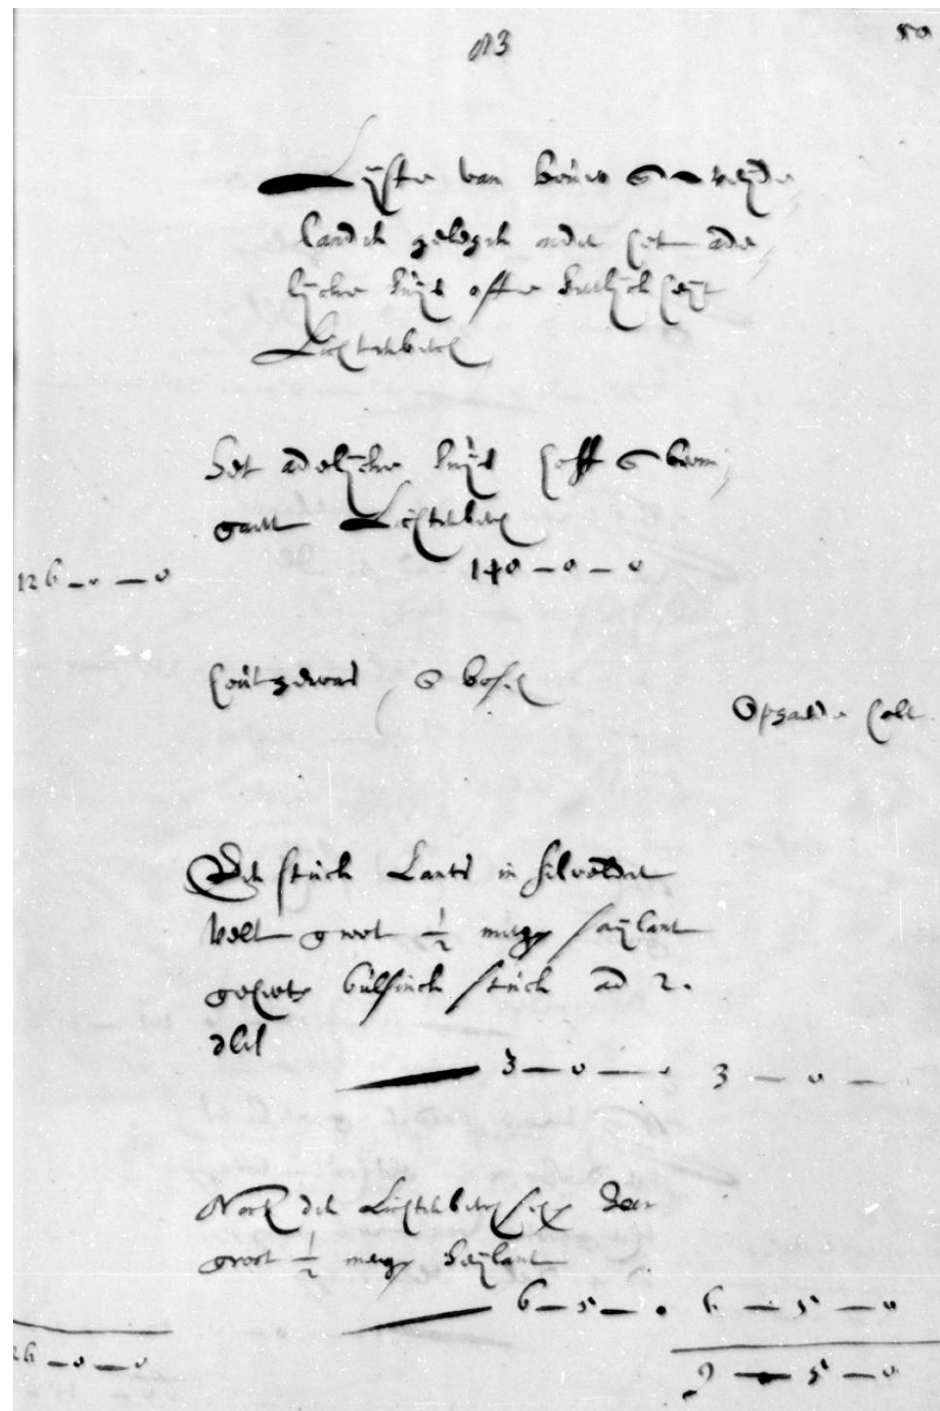 83
50
Lijste van bouw & weijde
landen gelegen onder het ade
lijcke huijs offte havesaet
Lichtenberch
Het adelijcke huijs hoff & boom
gart Lichtenberch
126 — 0 — 0 140 — 0 — 0
houtgewas & bosch
Opgaende holt
Een stuck Lants in Silvolder
velt groot ½ mergen saijlant
gehieten bulsinck stuck ad 2.
deel
3 — 0 — 0 3 — 0 —
Noch den Lichtenberchschen
groot ½ mergen Saijlant
6 — 5 — 0 6 — 5 — 0
26 — 0 — 0 9 — 5 — 0